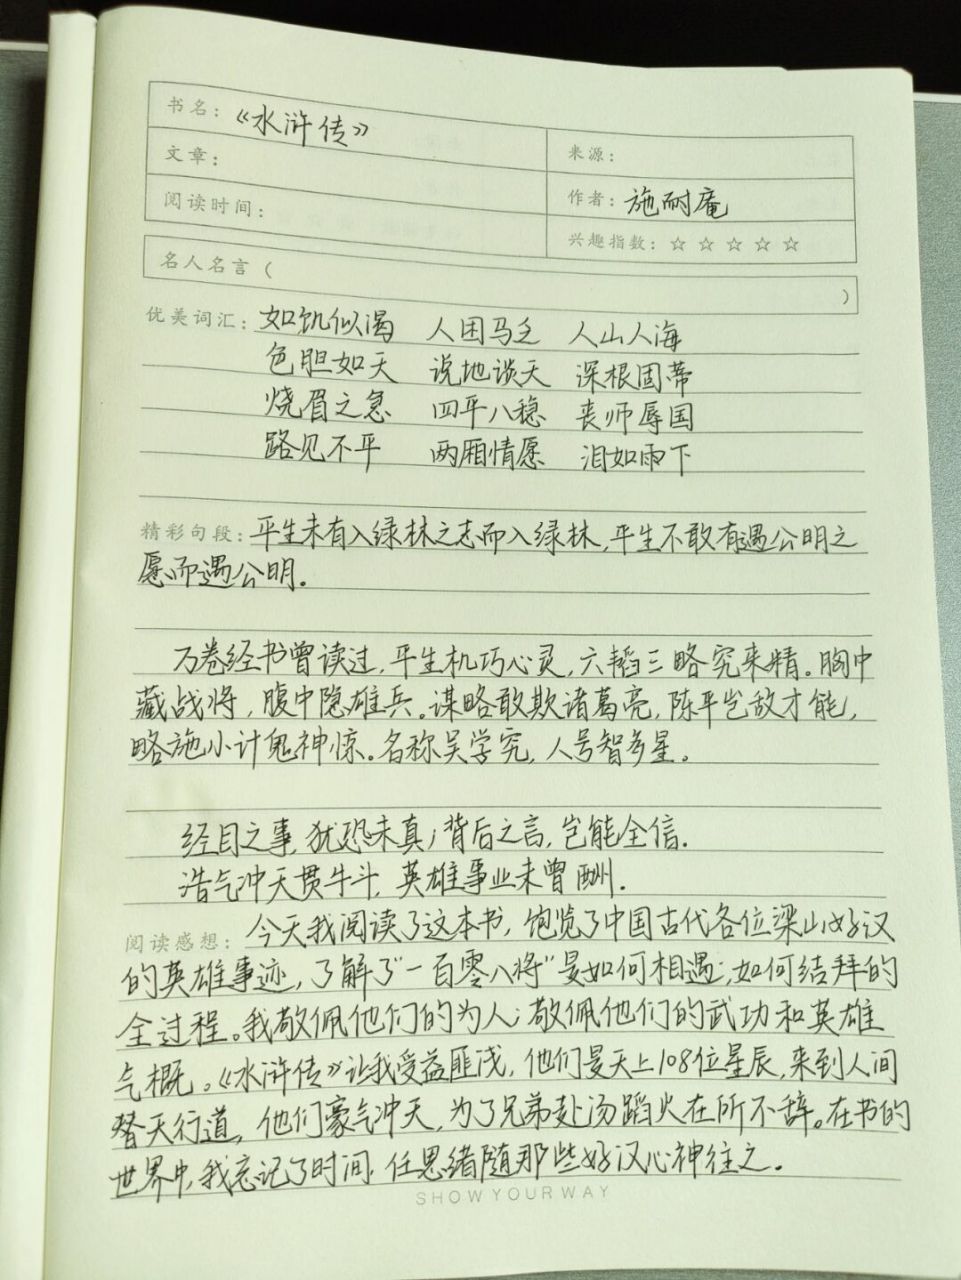 书名：《水浒传》
文章：
来源：
阅读时间：
作者：施耐庵
兴趣指数：☆ ☆ ☆ ☆ ☆
名人名言（ ）
优美词汇：如饥似渴 人困马乏 人山人海
色胆如天 说地谈天 深根固蒂
烧眉之急 四平八稳 丧师辱国
路见不平 两厢情愿 泪如雨下
精彩句段：平生未有入绿林之志而入绿林，平生不敢有遇公明之
愿而遇公明。
万卷经书曾读过，平生机巧心灵，六韬三略究来精。胸中
藏战将，腹中隐雄兵。谋略敢欺诸葛亮，陈平岂敌才能，
略施小计鬼神惊。名称吴学究，人号智多星。
经目之事，犹恐未真；背后之言，岂能全信。
浩气冲天贯牛斗，英雄事业未曾酬.
阅读感想：今天我阅读了这本书，饱览了中国古代各位梁山好汉
的英雄事迹，了解了"一百零八将"是如何相遇；如何结拜的
全过程。我敬佩他们的为人；敬佩他们的武功和英雄
气概。《水浒传》让我受益匪浅，他们是天上108位星辰，来到人间
替天行道，他们豪气冲天，为了兄弟赴汤蹈火在所不辞。在书的
世界中，我忘记了时间，任思绪随那些好汉心神往之。
SHOW YOUR WAY